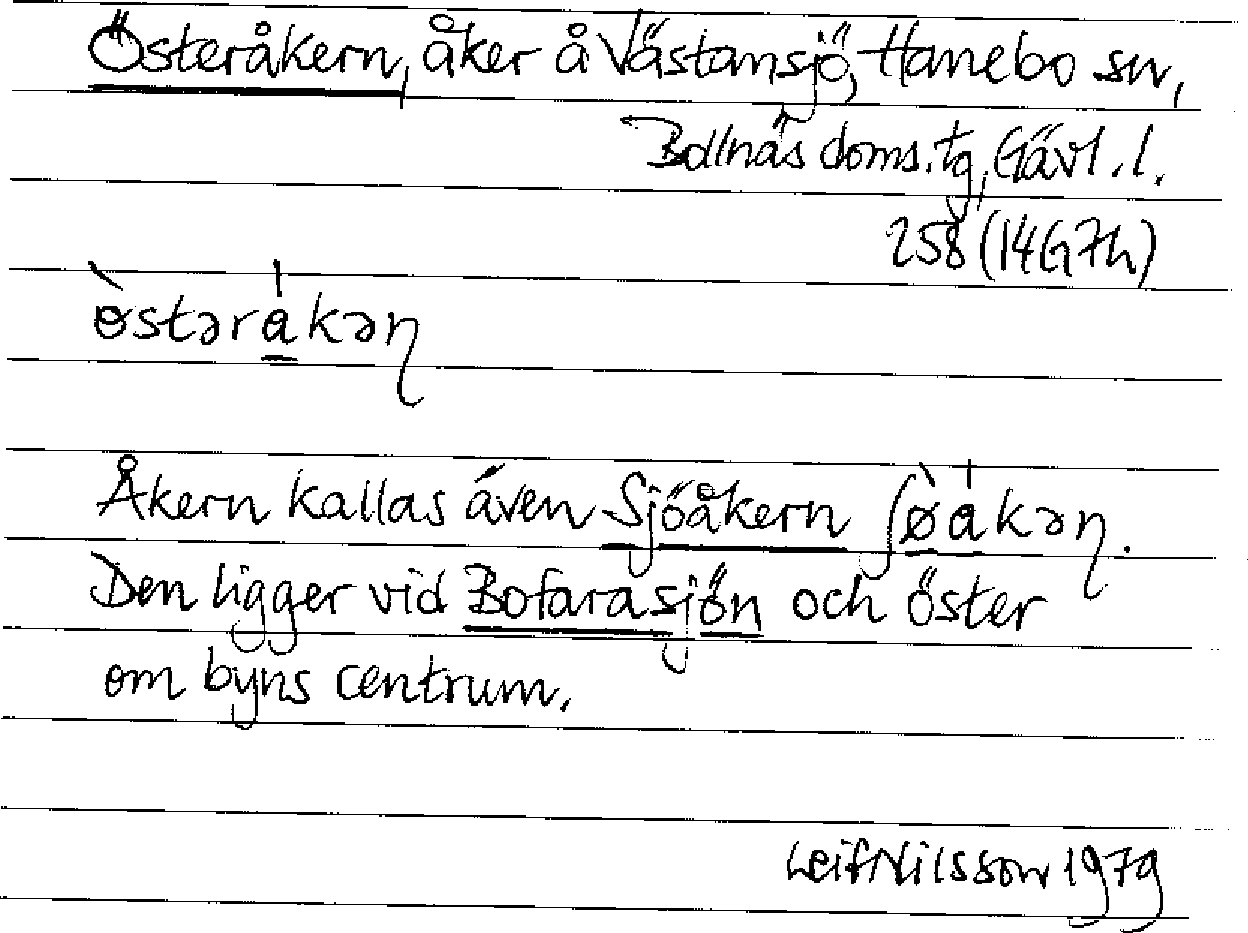 Österåkern, åker å Västansjö, Hanebo sn,
Bollnäs doms.tg, Gävl.l.
258 (14G7h)
ɵ̀stəra̱̍kəɳ
Åkern kallas även Sjöåkern ʃø̱̀a̱̍kəɳ.
Den ligger vid Bofarasjön och öster
om byns centrum.
Leif Nilsson 1979